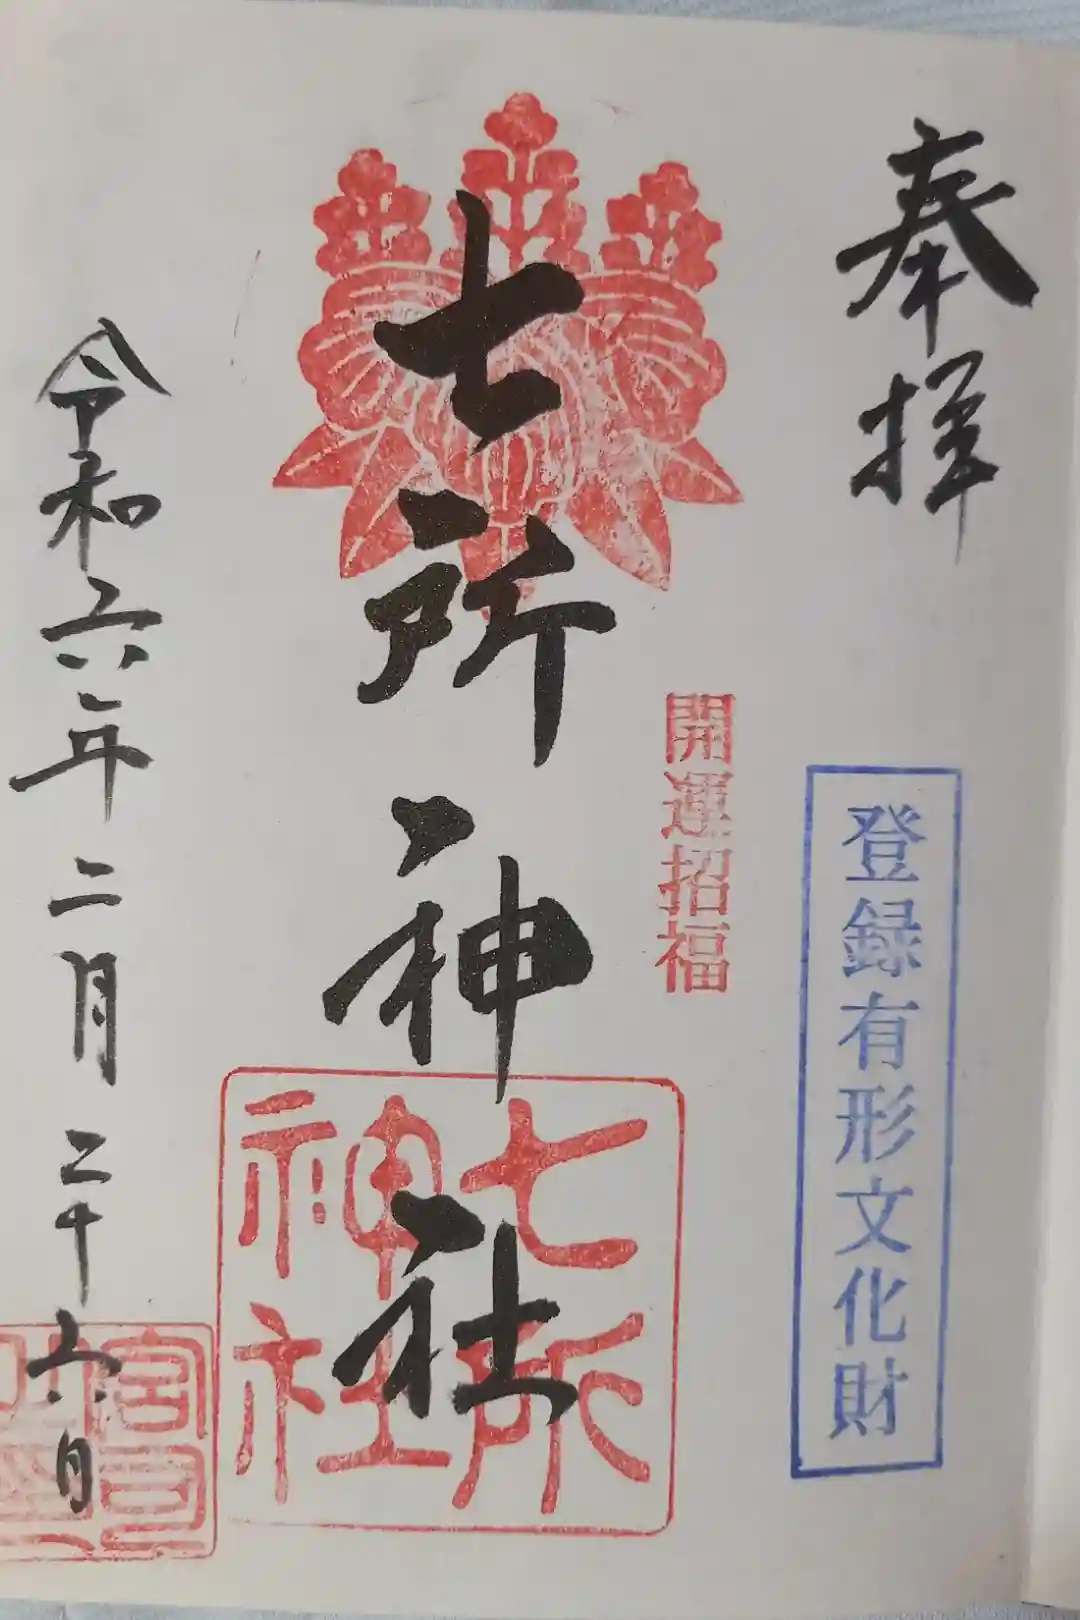 奉拝
登録有形文化財
開運招福
七所神社
七所
神社
令和六年二月二十六日
宮司